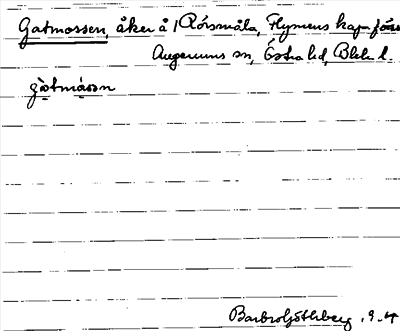 Gatmossen, åker å 1 Rörsmåla, Flymens kap.förs
Augerums sn, Östra hd, Blek. l.
gàtmåsen
Barbro Göthberg . 9.